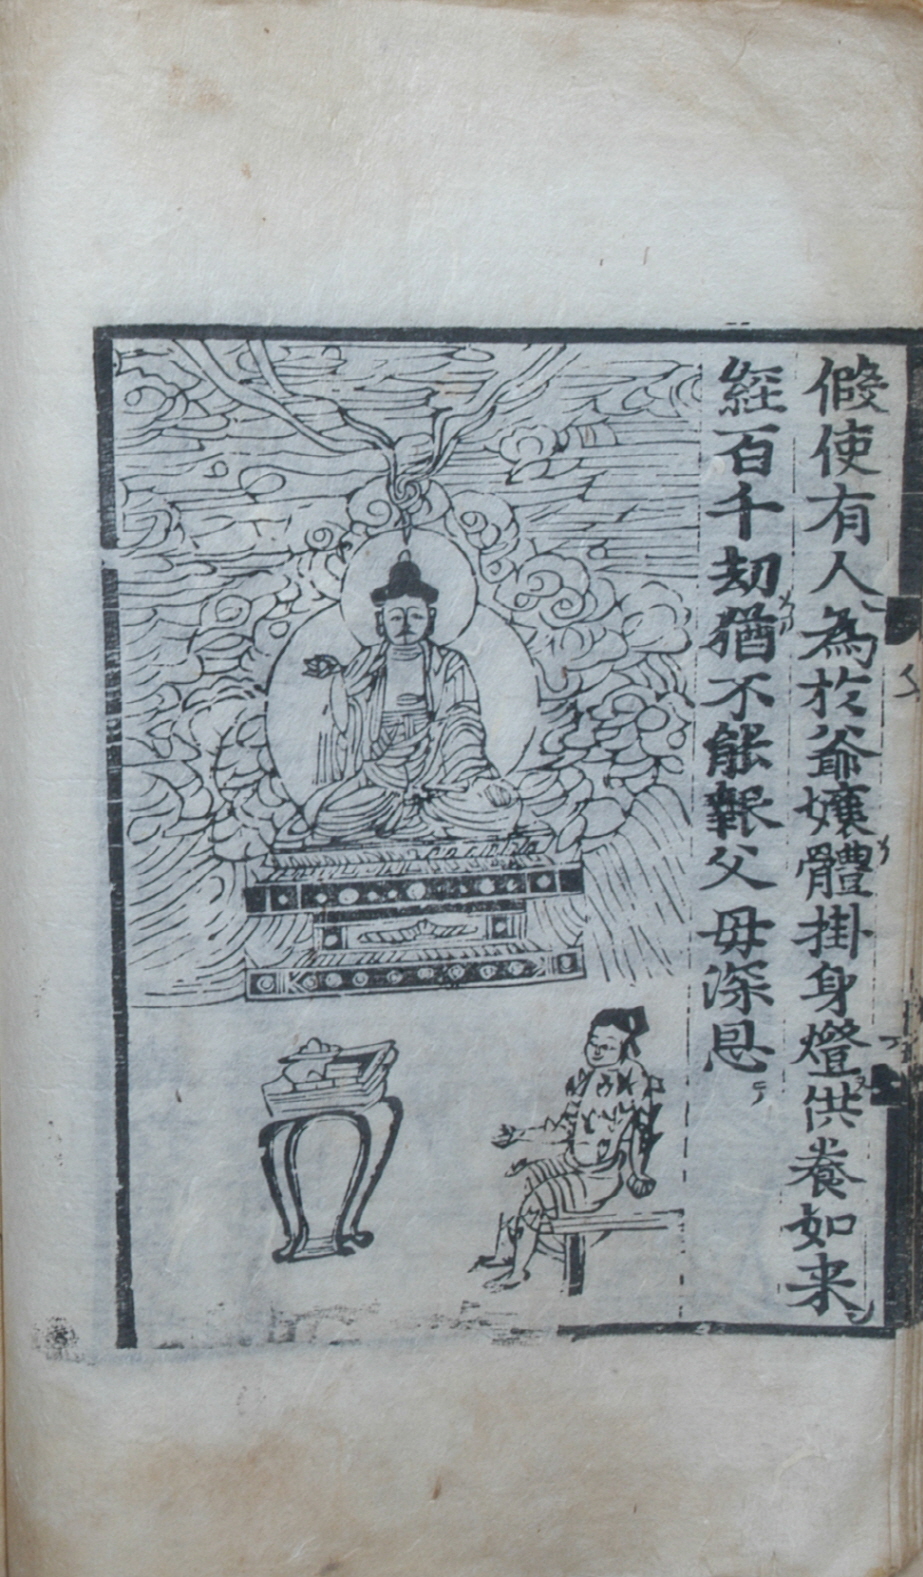 假使有人為於爺孃體掛身燈供養如来
經百千劫猶不能報父母深恩